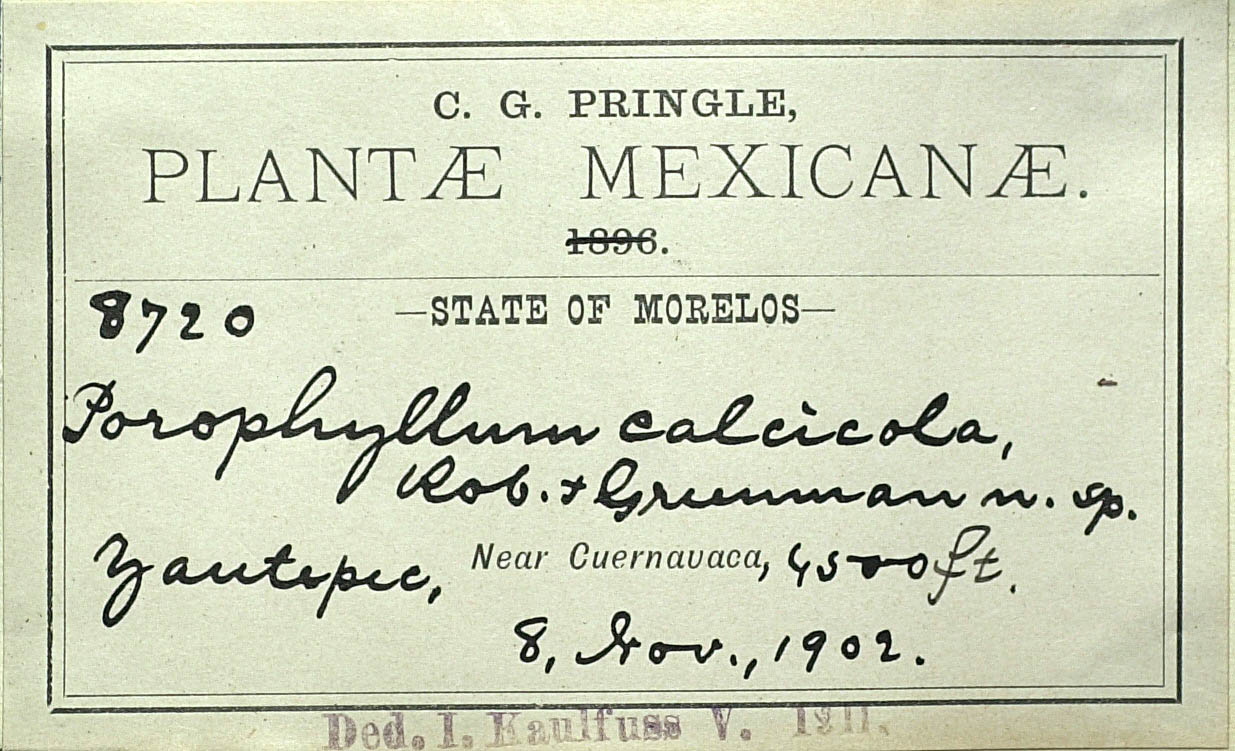 C. G. PRINGLE,
PLANTÆ MEXICANÆ.
1896.
8720 —STATE OF MORELOS—
Porophyllum calcicola,
Rob. + Greenman n. sp.
Yautepec, Near Cuernavaca, 4500 ft.
8, Nov., 1902.
Ded. I. Kaulfuss V. 1911.